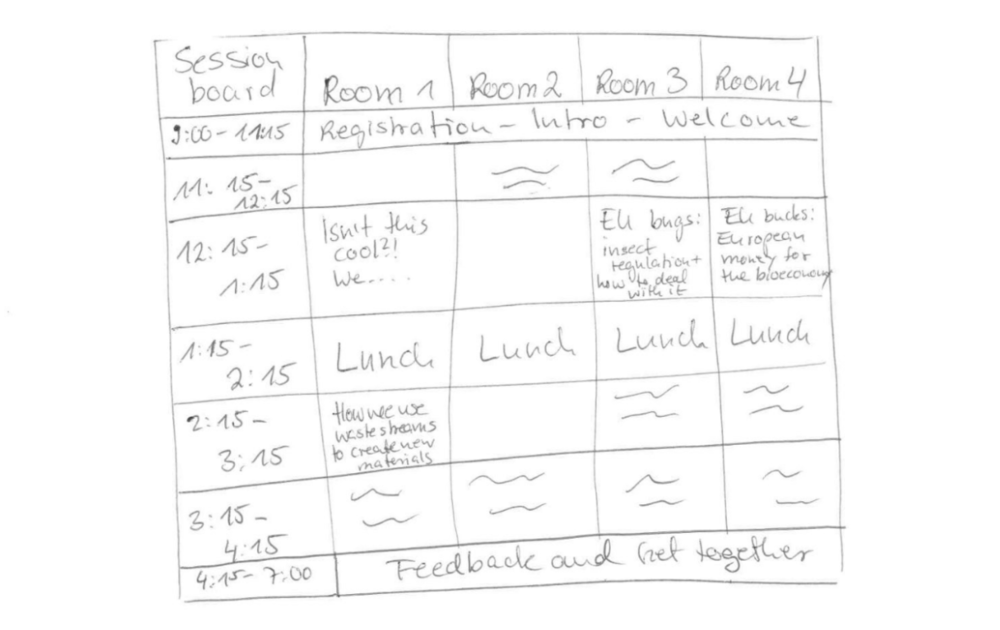 Session board
Room 1
Room 2
Room 3
Room 4
9:00-11:15
Registration - Intro - Welcome
11:15-
12:15
12:15-
1:15
Isn't this
cool?!
We....
EU bugs:
insect
regulation+
how to deal
with it
EU bucks:
European
money for
the bioeconomy
1:15-
2:15
Lunch
Lunch
Lunch
Lunch
2:15-
3:15
How we use
waste streams
to create new
materials
3:15-
4:15
4:15-7:00
Feedback and Get together